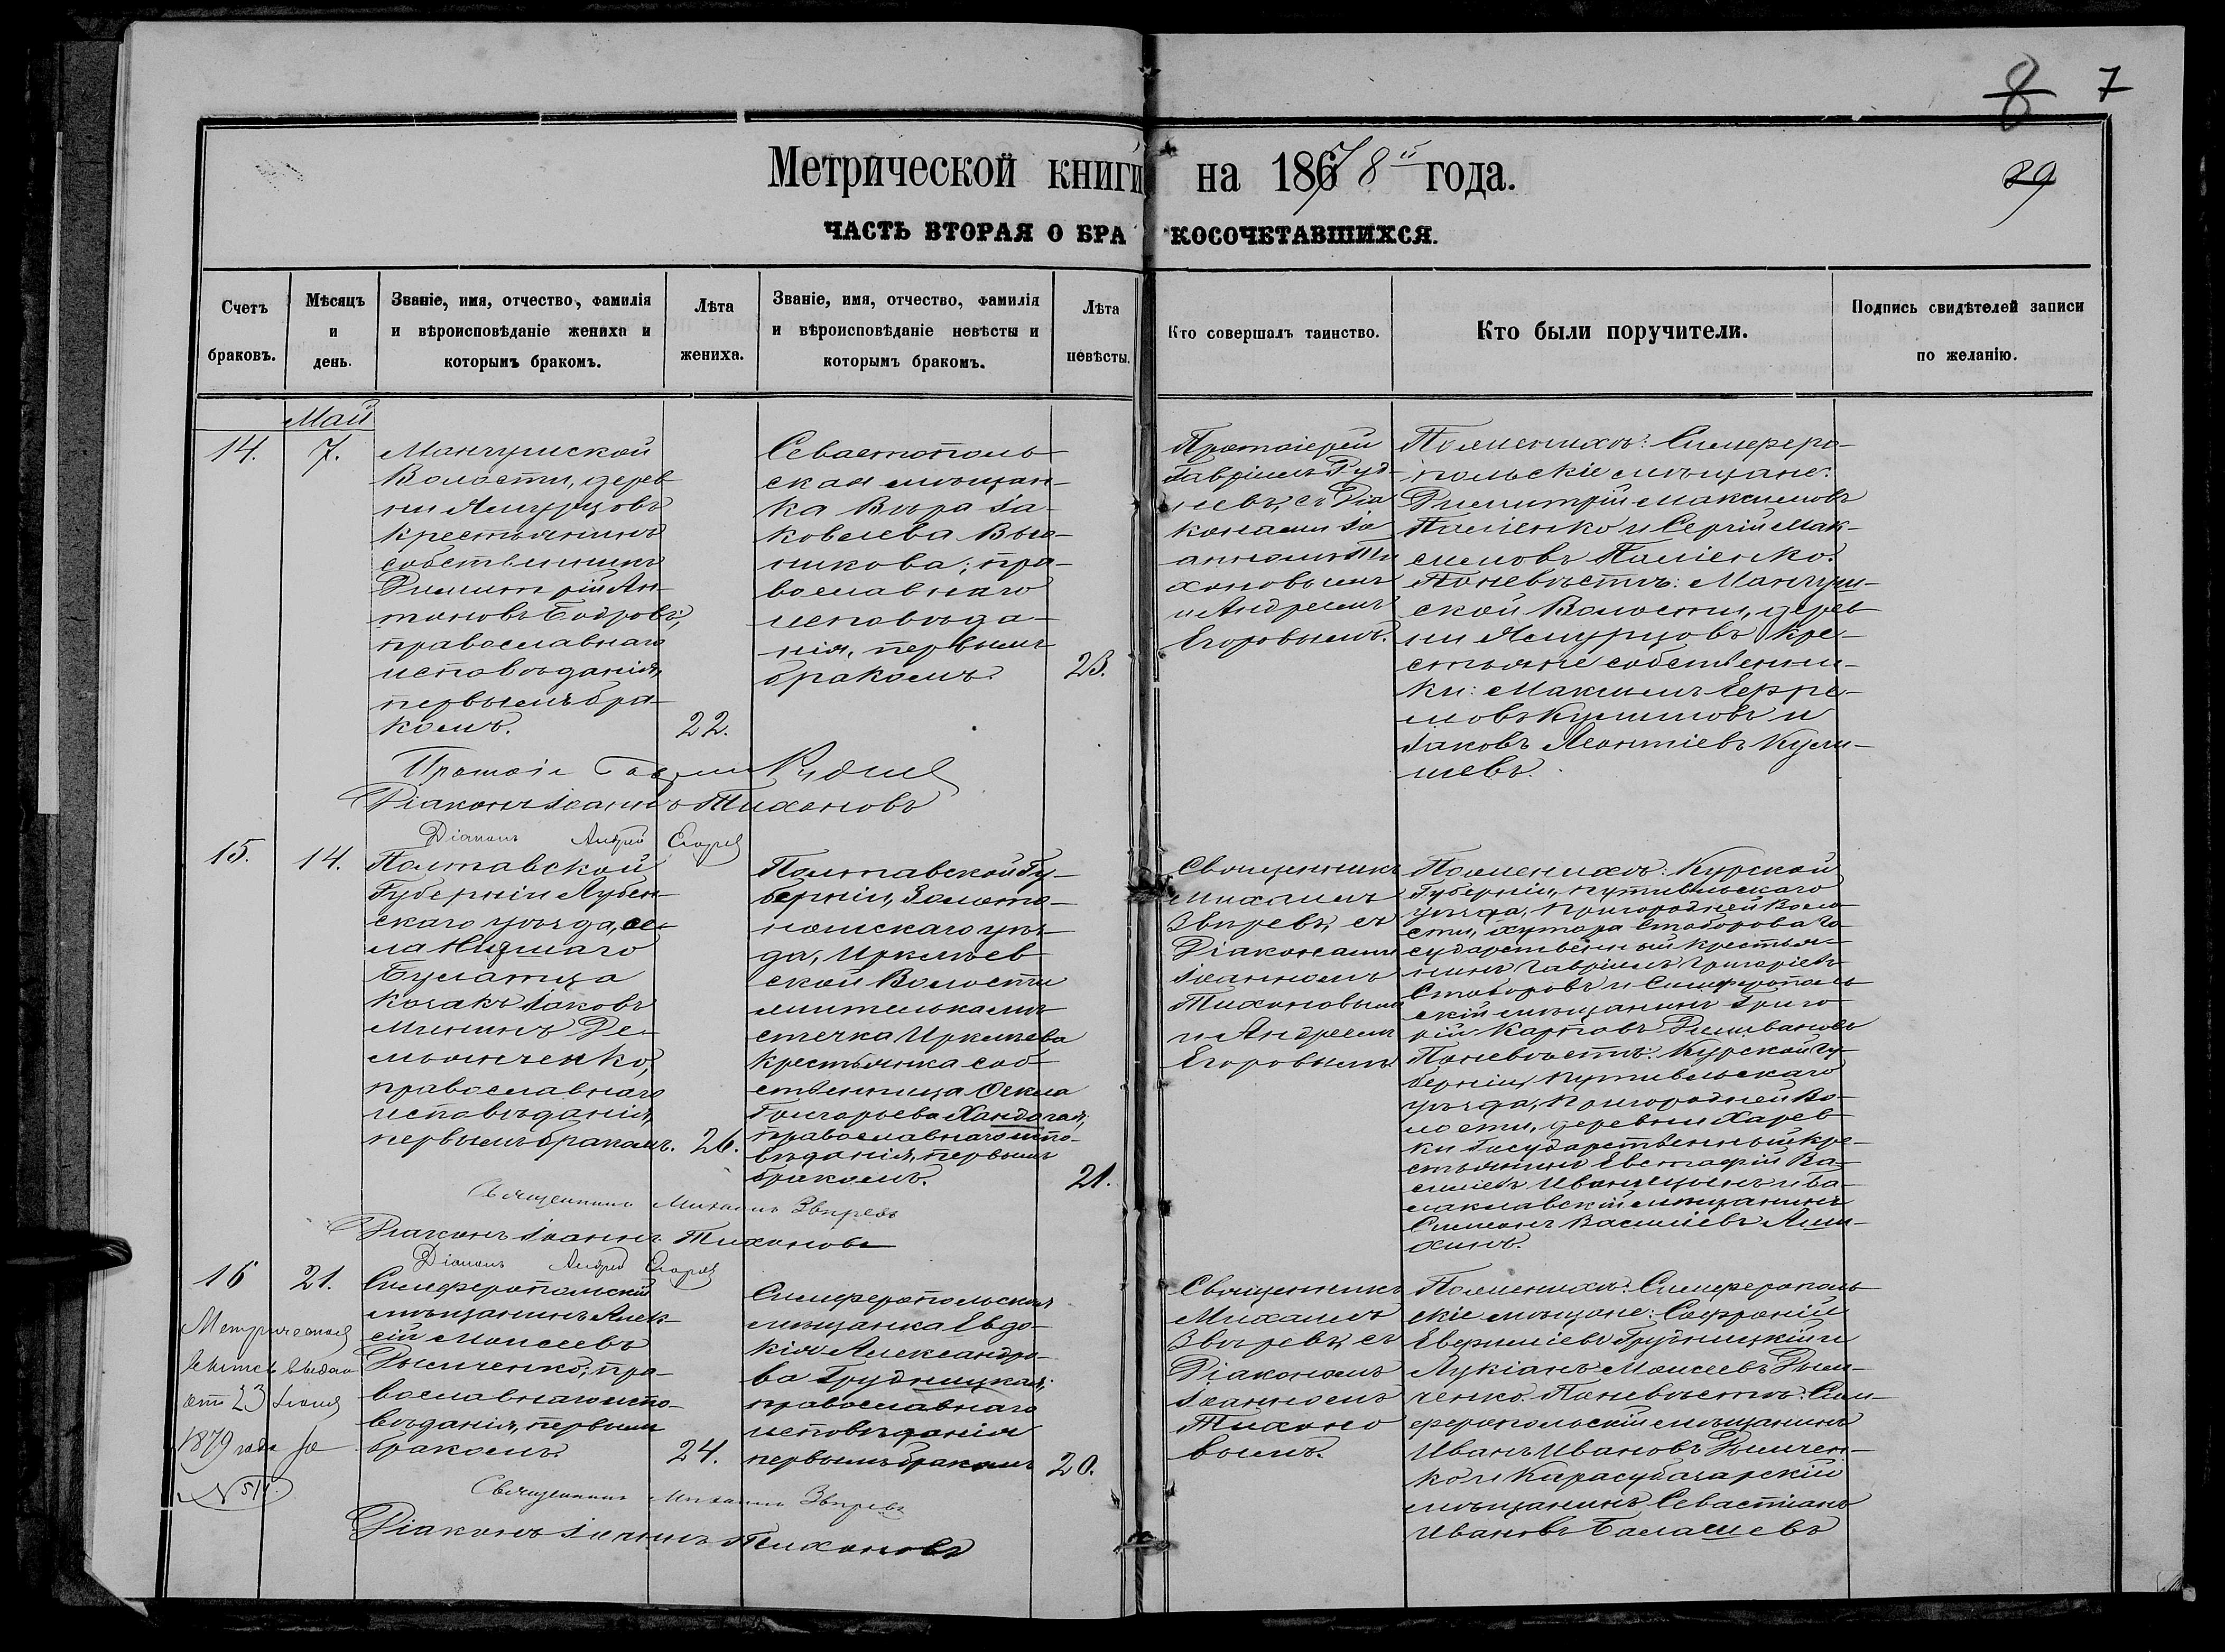 8
8
7
89
Метрической книги на 1878 года.
ЧАСТЬ ВТОРАЯ О БРАКОСОЧЕТАВШИХСЯ.
Счетъ браковъ.
Мѣсяцъ и день.
Званіе, имя, отчество, фамилія
и вѣроисповѣданіе жениха и
которымъ бракомъ.
Лѣта
жениха.
Званіе, имя, отчество, фамилія
и вѣроисповѣданіе невѣсты и
которымъ бракомъ.
Лѣта
невѣсты.
Кто совершалъ таинство.
Кто были поручители.
Подпись свидѣтелей записи
по желанію.
Май
14.
7.
Мангушской
Волости, дерев
ни
крестьянинъ
собственникъ
Димитрій Ан-
тоновъ Бобровъ;
православнаго
исповѣданія,
первымъ бра-
комъ.
22.
Севастополь-
ская мѣщан-
ка Вѣра Іа-
ковлева
пра-
вославнаго
исповѣда-
нія, первымъ
бракомъ.
23.
Протоіерей
Гавріилъ Руд-
невъ, съ Діа
конами Іо
анномъ Ти
хоновымъ
и Андреемъ
Егоровымъ.
По женихѣ: Симферо-
польскіе мѣщане:
Димитрій Максимовъ
и Сергій Мак-
симовъ
По невѣстѣ: Мангуш-
ской Волости, дерев
ни кре-
стьяне собственни-
ки: Максимъ Ефре-
мовъ и
Іаковъ Леонтіевъ
Діаконъ Іоаннъ Тихоновъ
Діаконъ Андрей Егоровъ
15.
14.
Полтавской
Губерніи Лубен-
скаго уѣзда, се-
ла Нижняго
Булатца
козакъ Іаковъ
Мининъ Де-
мьянченко,
православнаго
исповѣданія,
первымъ бракомъ.
26.
Полтавской Гу-
берніи, Золото-
ношскаго уѣз-
да, Ирклѣев
ской Волости
мѣстечка Ирклѣева
крестьянка соб-
ственница
Григорьева Хандогая;
православнаго испо-
вѣданія, первымъ
бракомъ.
21.
Священникъ
Михаилъ
Звѣревъ, съ
Діаконами
Іоанномъ
Тихоновымъ
и Андреемъ
Егоровымъ
По женихѣ: Курской
Губерніи, Путивльскаго
уѣзда, Пригородней Воло
сти, хутора Го
сударственный крестья-
нинъ Гавріилъ Григоріевъ
и Симферополь
скій мѣщанинъ Григо
рій Карповъ
По невѣстѣ: Курской Гу-
берніи, Путивльскаго
уѣзда, Пригородней Во-
лости, деревни Харев
ки Государственный кре-
стьянинъ Евстафій Ва-
силіевъ и Ба-
лаклавскій мѣщанинъ
Симеонъ Василіевъ
Священникъ Михаилъ Звѣревъ
Діаконъ Іоаннъ Тихоновъ
Діаконъ Андрей Егоровъ
16
21.
Метрическая
выдано
отъ 23 Іюня
1879 года за
№
Симферопольскій
мѣщанинъ Алек-
сій Моисеевъ
пра-
вославнаго испо-
вѣданія, первымъ
бракомъ.
24.
Симферопольская
мѣщанка Евдо-
кія Александро-
ва Грудницкая;
православнаго
исповѣданія
первымъ бракомъ
20.
Священникъ
Михаилъ
Звѣревъ, съ
Діакономъ
Іоанномъ
Тихоно
вымъ.
По женихѣ: Симферополь
скіе мѣщане: Софроній
Грудницкій и
Лукіанъ Моисеевъ
По невѣстѣ: Сим-
феропольскій мѣщанинъ
Иванъ Ивановъ
и Карасубазарскій
мѣщанинъ Севастіанъ
Ивановъ Балашевъ
Священникъ Михаилъ Звѣревъ
Діаконъ Іоаннъ Тихоновъ